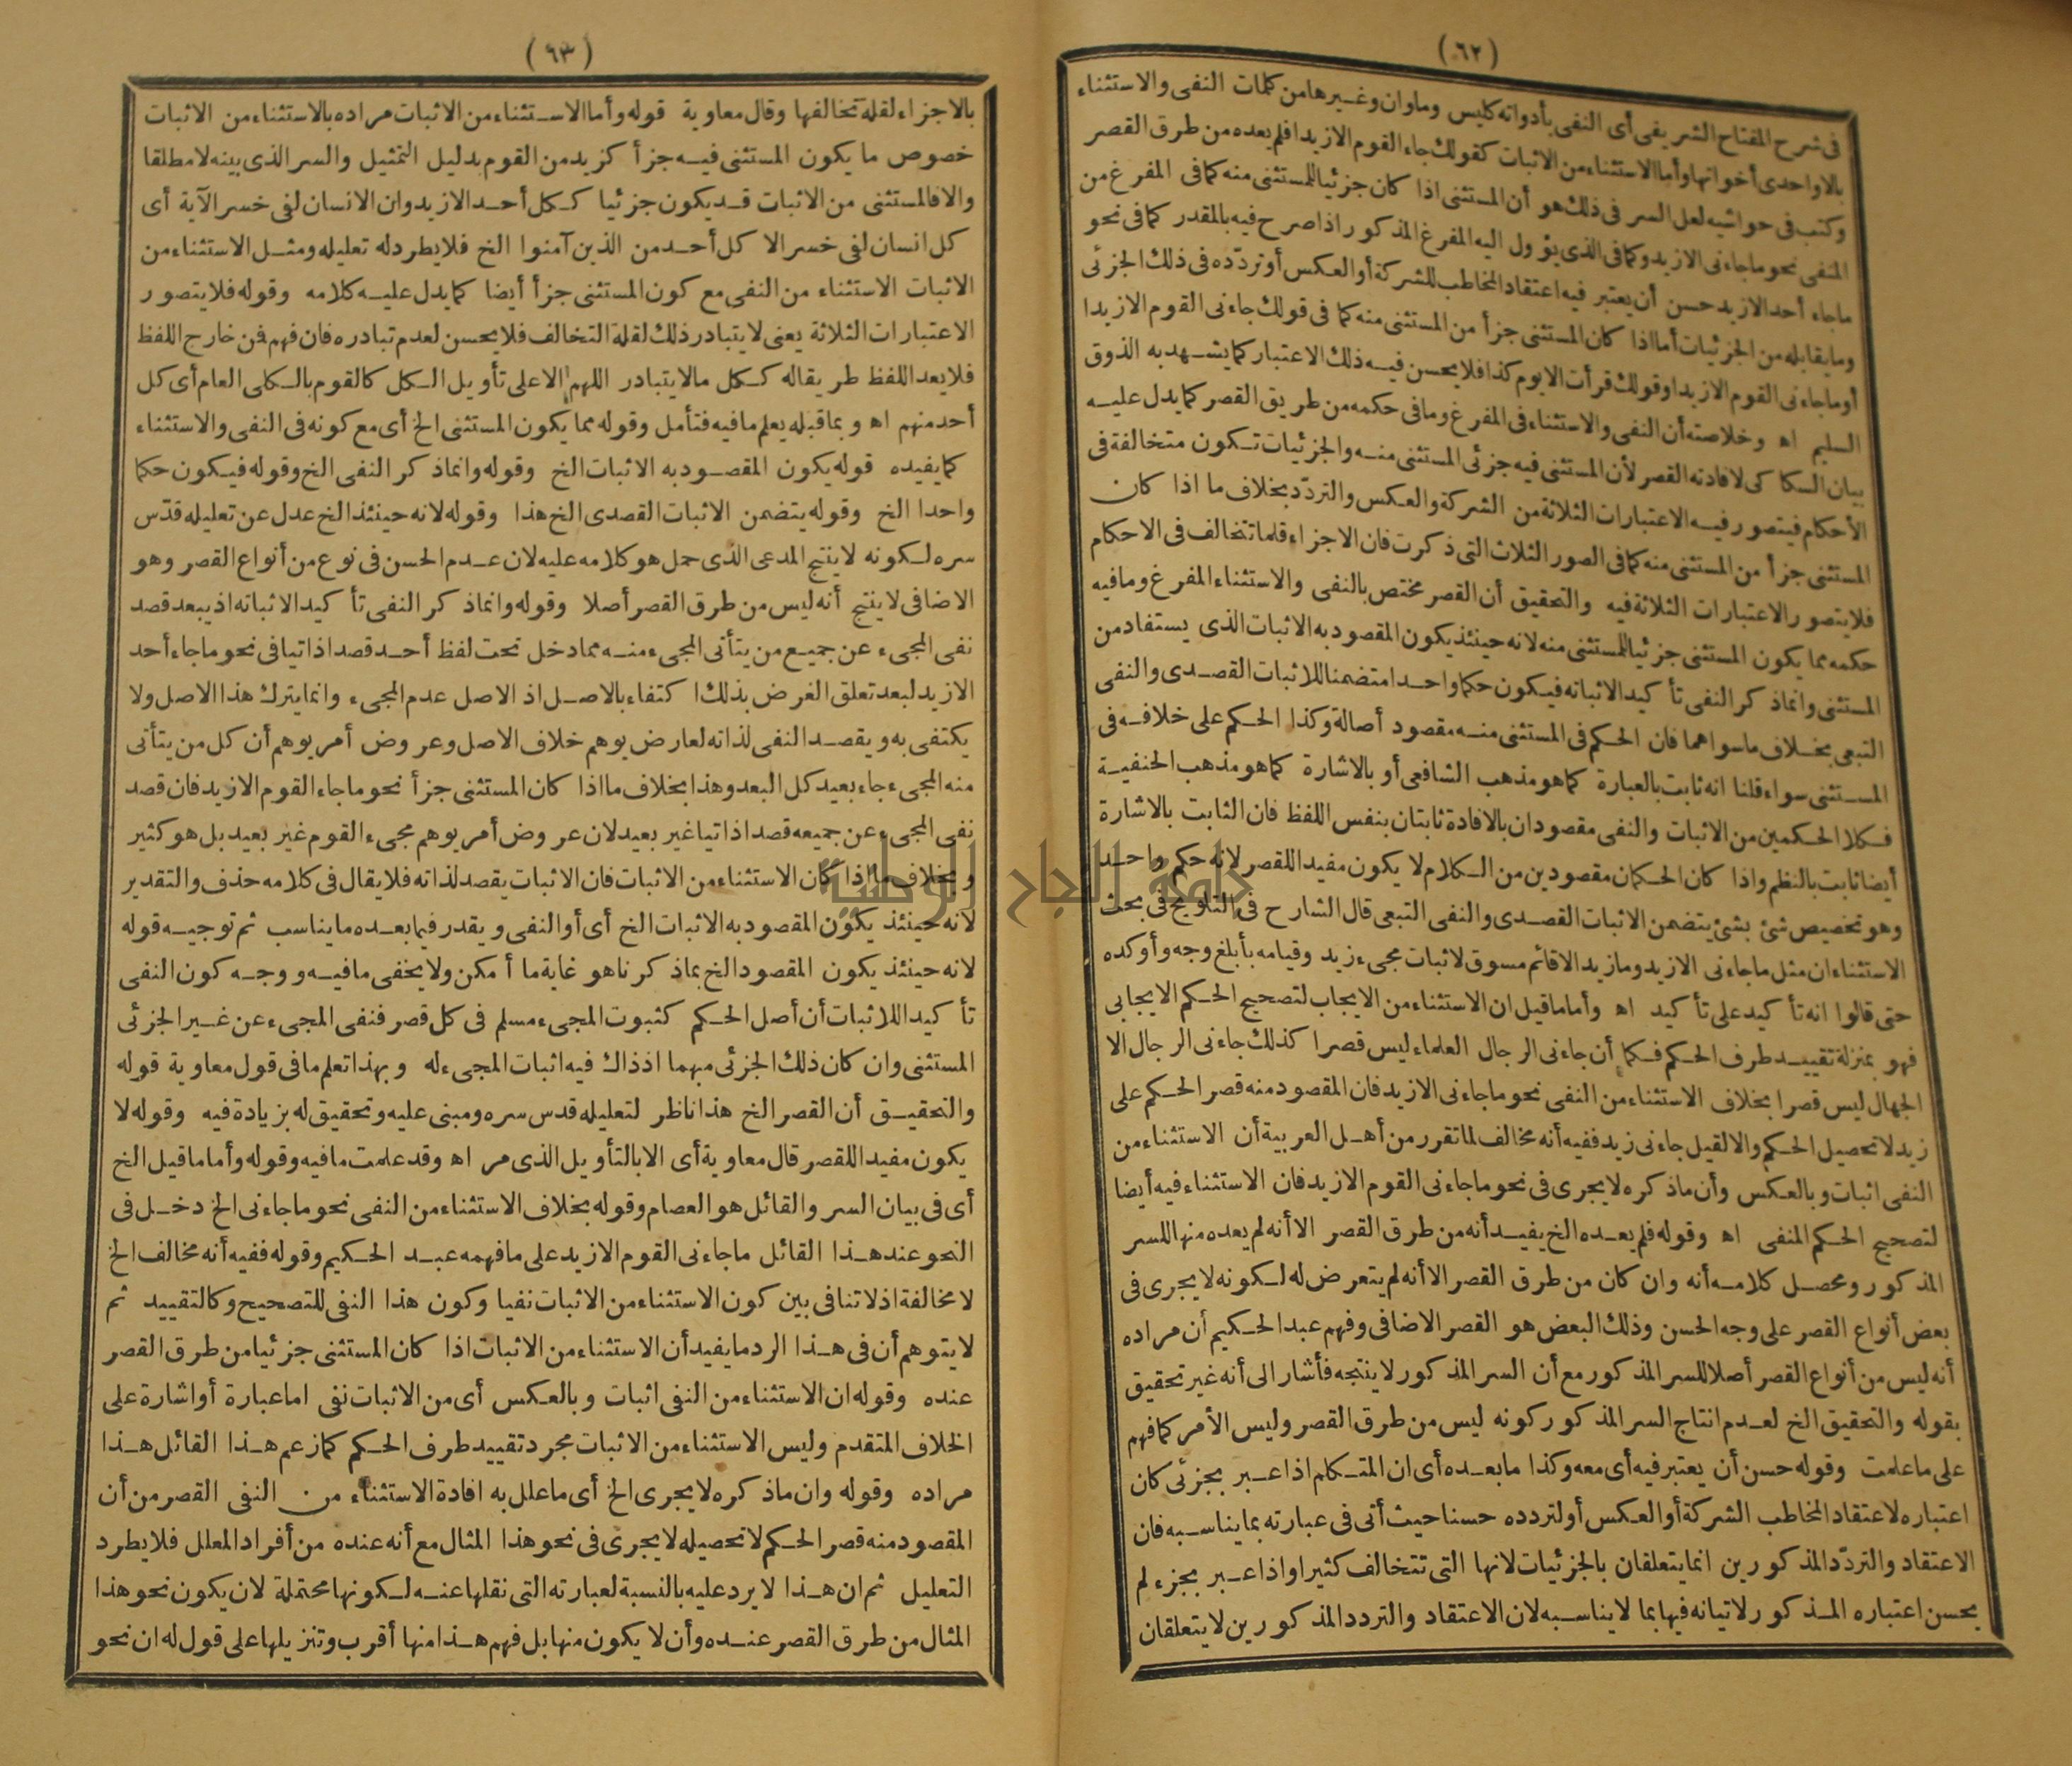 (٦٢)
فى شرح المفتاح الشريفى أى النفى بأدواته كليس وما وان وغيرها من كلمات النفى والاستثناء
بالا واحدى أخواتها وأما الاستثناء من الاثبات كقولك جاء القوم الا زيدا فلم يعده من طرق القصر
وكتب فى حواشيه لعل السر فى ذلك هو أن المستثنى اذا كان جزئيا للمستثنى منه كما فى المفرغ من
المنفى نحو ما جاءنى الا زيد وكما فى الذى يؤول اليه المفرغ المذكور اذا صرح فيه بالمقدر كما فى نحو
ما جاء أحد الا زيد حسن أن يعتبر فيه اعتقاد المخاطب للشركة أو العكس أو تردّده فى ذلك الجزئى
وما يقابله من الجزئيات أما اذا كان المستثنى جزأ من المستثنى منه كما فى قولك جاءنى القوم الا زيدا
أو ما جاءنى القوم الا زيدا وقولك قرأت الا يوم كذا فلا يحسن فيه ذلك الاعتبار كما يشهد به الذوق
السليم اه وخلاصته أن النفى والاستثناء فى المفرغ وما فى حكمه من طريق القصر كما يدل عليه
بيان السكاكى لافادته القصر لأن المستثنى فيه جزئى المستثنى منه والجزئيات تكون متخالفة فى
الأحكام فيتصور فيه الاعتبارات الثلاثة من الشركة والعكس والتردّد بخلاف ما اذا كان
المستثنى جزأ من المستثنى منه كما فى الصور الثلاث التى ذكرت فان الاجزاء قلما تتخالف فى الاحكام
فلا يتصور الاعتبارات الثلاثة فيه والتحقيق أن القصر مختص بالنفى والاستثناء المفرغ وما فيه
حكمه مما يكون المستثنى جزئيا للمستثنى منه لانه حينئذ يكون المقصود به الاثبات الذى يستفاد من
المستثنى وانما ذكر النفى تأكيد الاثباته فيكون حكما واحدا متضمنا للاثبات القصدى والنفى
التبعى بخلاف ما سواهما فان الحكم فى المستثنى منه مقصود أصالة وكذا الحكم على خلافه فى
المستثنى سواء قلنا انه ثابت بالعبارة كما هو مذهب الشافعى أو بالاشارة كما هو مذهب الحنفية
فكلا الحكمين من الاثبات والنفى مقصودان بالافادة ثابتان بنفس اللفظ فان الثابت بالاشارة
أيضا ثابت بالنظم واذا كان الحكمان مقصودين من الكلام لا يكون مفيدا للقصر لانه حكم واحد
وهو تخصيص شئ بشئ يتضمن الاثبات القصدى والنفى التبعى قال الشارح فى التلويح فى بحث
الاستثناء ان مثل ما جاءنى الا زيد وما زيد الا قائم مسوق لاثبات مجىء زيد وقيامه بأبلغ وجه وأوكده
حتى قالوا انه تأكيد على تأكيد اه وأما ما قيل ان الاستثناء من الايجاب لتصحيح الحكم الايجابى
فهو بمنزلة تقييد طرف الحكم فكما أن جاءنى الرجال العلماء ليس قصرا كذلك جاءنى الرجال الا
الجهال ليس قصرا بخلاف الاستثناء من النفى نحو ما جاءنى الا زيد فان المقصود منه قصر الحكم على
زيد لا تحصيل الحكم والا لقيل جاءنى زيد ففيه أنه مخالف لما تقرر من أهل العربية أن الاستثناء من
النفى اثبات وبالعكس وأن ما ذكره لا يجرى فى نحو ما جاءنى القوم الا زيد فان الاستثناء فيه أيضا
لتصحيح الحكم المنفى اه وقوله فلم يعده الخ يفيد أنه من طرق القصر الا أنه لم يعده منها للسر
المذكور ومحصل كلامه أنه وان كان من طرق القصر الا أنه لم يتعرض له لكونه لا يجرى فى
بعض أنواع القصر على وجه الحسن وذلك البعض هو القصر الاضافى وفهم عبد الحكيم أن مراده
أنه ليس من أنواع القصر أصلا للسر المذكور مع أن السر المذكور لا ينتجه فأشار الى أنه غير تحقيق
بقوله والتحقيق الخ لعدم انتاج السر المذكور كونه ليس من طرق القصر وليس الأمر كما فهم
على ما علمت وقوله حسن أن يعتبر فيه أى معه وكذا ما بعده أى ان المتكلم اذا عبر بجزئى كان
اعتباره لاعتقاد المخاطب الشركة أو العكس أو لتردده حسنا حيث أتى فى عبارته بما يناسبه فان
الاعتقاد والتردّد المذكورين انما يتعلقان بالجزئيات لانها التى تتخالف كثيرا واذا عبر بجزء لم
يحسن اعتباره المذكور لاتيانه فيها بما لا يناسبه لان الاعتقاد والتردد المذكورين لا يتعلقان
(٦٣)
بالاجزاء لقلة تخالفها وقال معاوية قوله وأما الاستثناء من الاثبات مراده بالاستثناء من الاثبات
خصوص ما يكون المستثنى فيه جزأ كزيد من القوم بدليل التمثيل والسر الذى بينه لا مطلقا
والا فالمستثنى من الاثبات قد يكون جزئيا ككل أحد الا زيد وان الانسان لفى خسر الآية أى
كل انسان لفى خسر الا كل أحد من الذين آمنوا الخ فلا يطرد له تعليله ومثل الاستثناء من
الاثبات الاستثناء من النفى مع كون المستثنى جزأ أيضا كما يدل عليه كلامه وقوله فلا يتصور
الاعتبارات الثلاثة يعنى لا يتبادر ذلك لقلة التخالف فلا يحسن لعدم تبادره فان فهم فمن خارج اللفظ
فلا يعد اللفظ طريقا له ككل ما لا يتبادر اللهم الا على تأويل الكل كالقوم بالكلى العام أى كل
أحد منهم اه وبما قبله يعلم ما فيه فتأمل وقوله مما يكون المستثنى الخ أى مع كونه فى النفى والاستثناء
كما يفيده قوله يكون المقصود به الاثبات الخ وقوله وانما ذكر النفى الخ وقوله فيكون حكما
واحدا الخ وقوله يتضمن الاثبات القصدى الخ هذا وقوله لانه حينئذ الخ عدل عن تعليله قدّس
سره لكونه لا ينتج المدعى الذى حمل هو كلامه عليه لان عدم الحسن فى نوع من أنواع القصر وهو
الاضافى لا ينتج أنه ليس من طرق القصر أصلا وقوله وانما ذكر النفى تأكيد الاثباته اذ يبعد قصد
نفى المجىء عن جميع من يتأتى المجىء منه مما دخل تحت لفظ أحد قصدا ذاتيا فى نحو ما جاء أحد
الا زيد لبعد تعلق الغرض بذلك اكتفاء بالاصل اذ الاصل عدم المجىء وانما يترك هذا الاصل ولا
يكتفى به ويقصد النفى لذاته لعارض يوهم خلاف الاصل وعروض أمر يوهم أن كل من يتأتى
منه المجىء جاء بعيد كل البعد وهذا بخلاف ما اذا كان المستثنى جزأ نحو ما جاء القوم الا زيد فان قصد
نفى المجىء عن جميعه قصدا ذاتيا غير بعيد لان عروض أمر يوهم مجىء القوم غير بعيد بل هو كثير
وبخلاف ما اذا كان الاستثناء من الاثبات فان الاثبات يقصد لذاته فلا يقال فى كلامه حذف والتقدير
لانه حينئذ يكون المقصود به الاثبات الخ أى أو النفى ويقدر فيما بعده ما يناسب ثم توجيه قوله
لانه حينئذ يكون المقصود الخ بما ذكرنا هو غاية ما أمكن ولا يخفى ما فيه ووجه كون النفى
تأكيدا للاثبات أن أصل الحكم كثبوت المجىء مسلم فى كل قصر فنفى المجىء عن غير الجزئى
المستثنى وان كان ذلك الجزئى مبهما اذ ذاك فيه اثبات المجىء له وبهذا تعلم ما فى قول معاوية قوله
والتحقيق أن القصر الخ هذا ناظر لتعليله قدس سره ومبنى عليه وتحقيق له بزيادة فيه وقوله لا
يكون مفيدا للقصر قال معاوية أى الا بالتأويل الذى مر اه وقد علمت ما فيه وقوله وأما ما قيل الخ
أى فى بيان السر والقائل هو العصام وقوله بخلاف الاستثناء من النفى نحو ما جاءنى الخ دخل فى
النحو عند هذا القائل ما جاءنى القوم الا زيد على ما فهمه عبد الحكيم وقوله ففيه أنه مخالف الخ
لا مخالفة اذ لا تنافى بين كون الاستثناء من الاثبات نفيا وكون هذا النفى للتصحيح وكالتقييد ثم
لا يتوهم أن فى هذا الرد ما يفيد أن الاستثناء من الاثبات اذا كان المستثنى جزئيا من طرق القصر
عنده وقوله ان الاستثناء من النفى اثبات وبالعكس أى من الاثبات نفى اما عبارة أو اشارة على
الخلاف المتقدم وليس الاستثناء من الاثبات مجرد تقييد طرف الحكم كما زعم هذا القائل هذا
مراده وقوله وان ما ذكره لا يجرى الخ أى ما علل به افادة الاستثناء من النفى القصر من أن
المقصود منه قصر الحكم لا تحصيله لا يجرى فى نحو هذا المثال مع أنه عنده من أفراد المعلل فلا يطرد
التعليل ثم ان هذا لا يرد عليه بالنسبة لعبارته التى نقلها عنه لكونها محتملة لان يكون نحو هذا
المثال من طرق القصر عنده وأن لا يكون منها بل فهم هذا منها أقرب وتنزيلها على قوله ان نحو
جامعة النجاح الوطنية